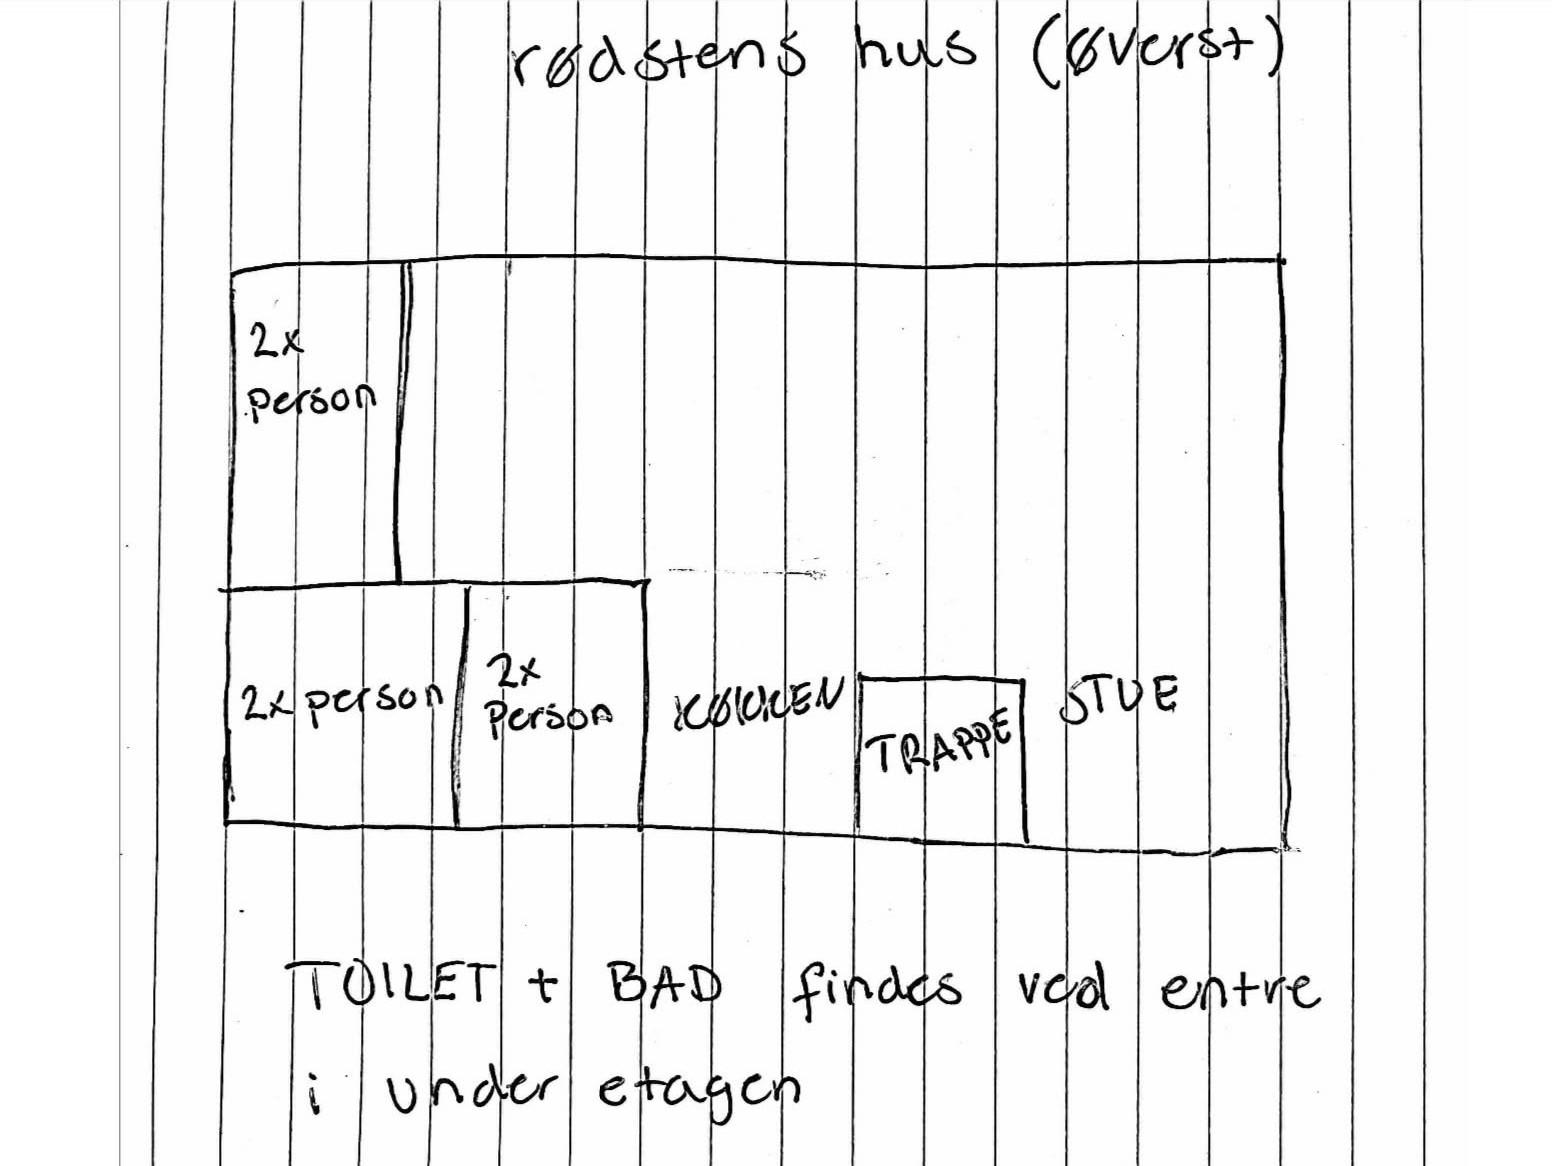 rødstens hus (øverst)
2x
person
2x person
2x
Person
KØKKEN
TRAPPE
STUE
TOILET + BAD findes ved entre
i under etagen